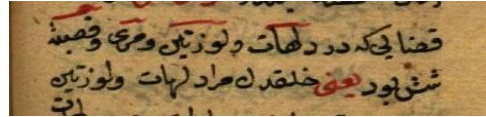 قضایی که در دلهات ولوزتین ومری وقصبهٔ
شش بود یعنی خلقدن مراد لهات ولوزتین